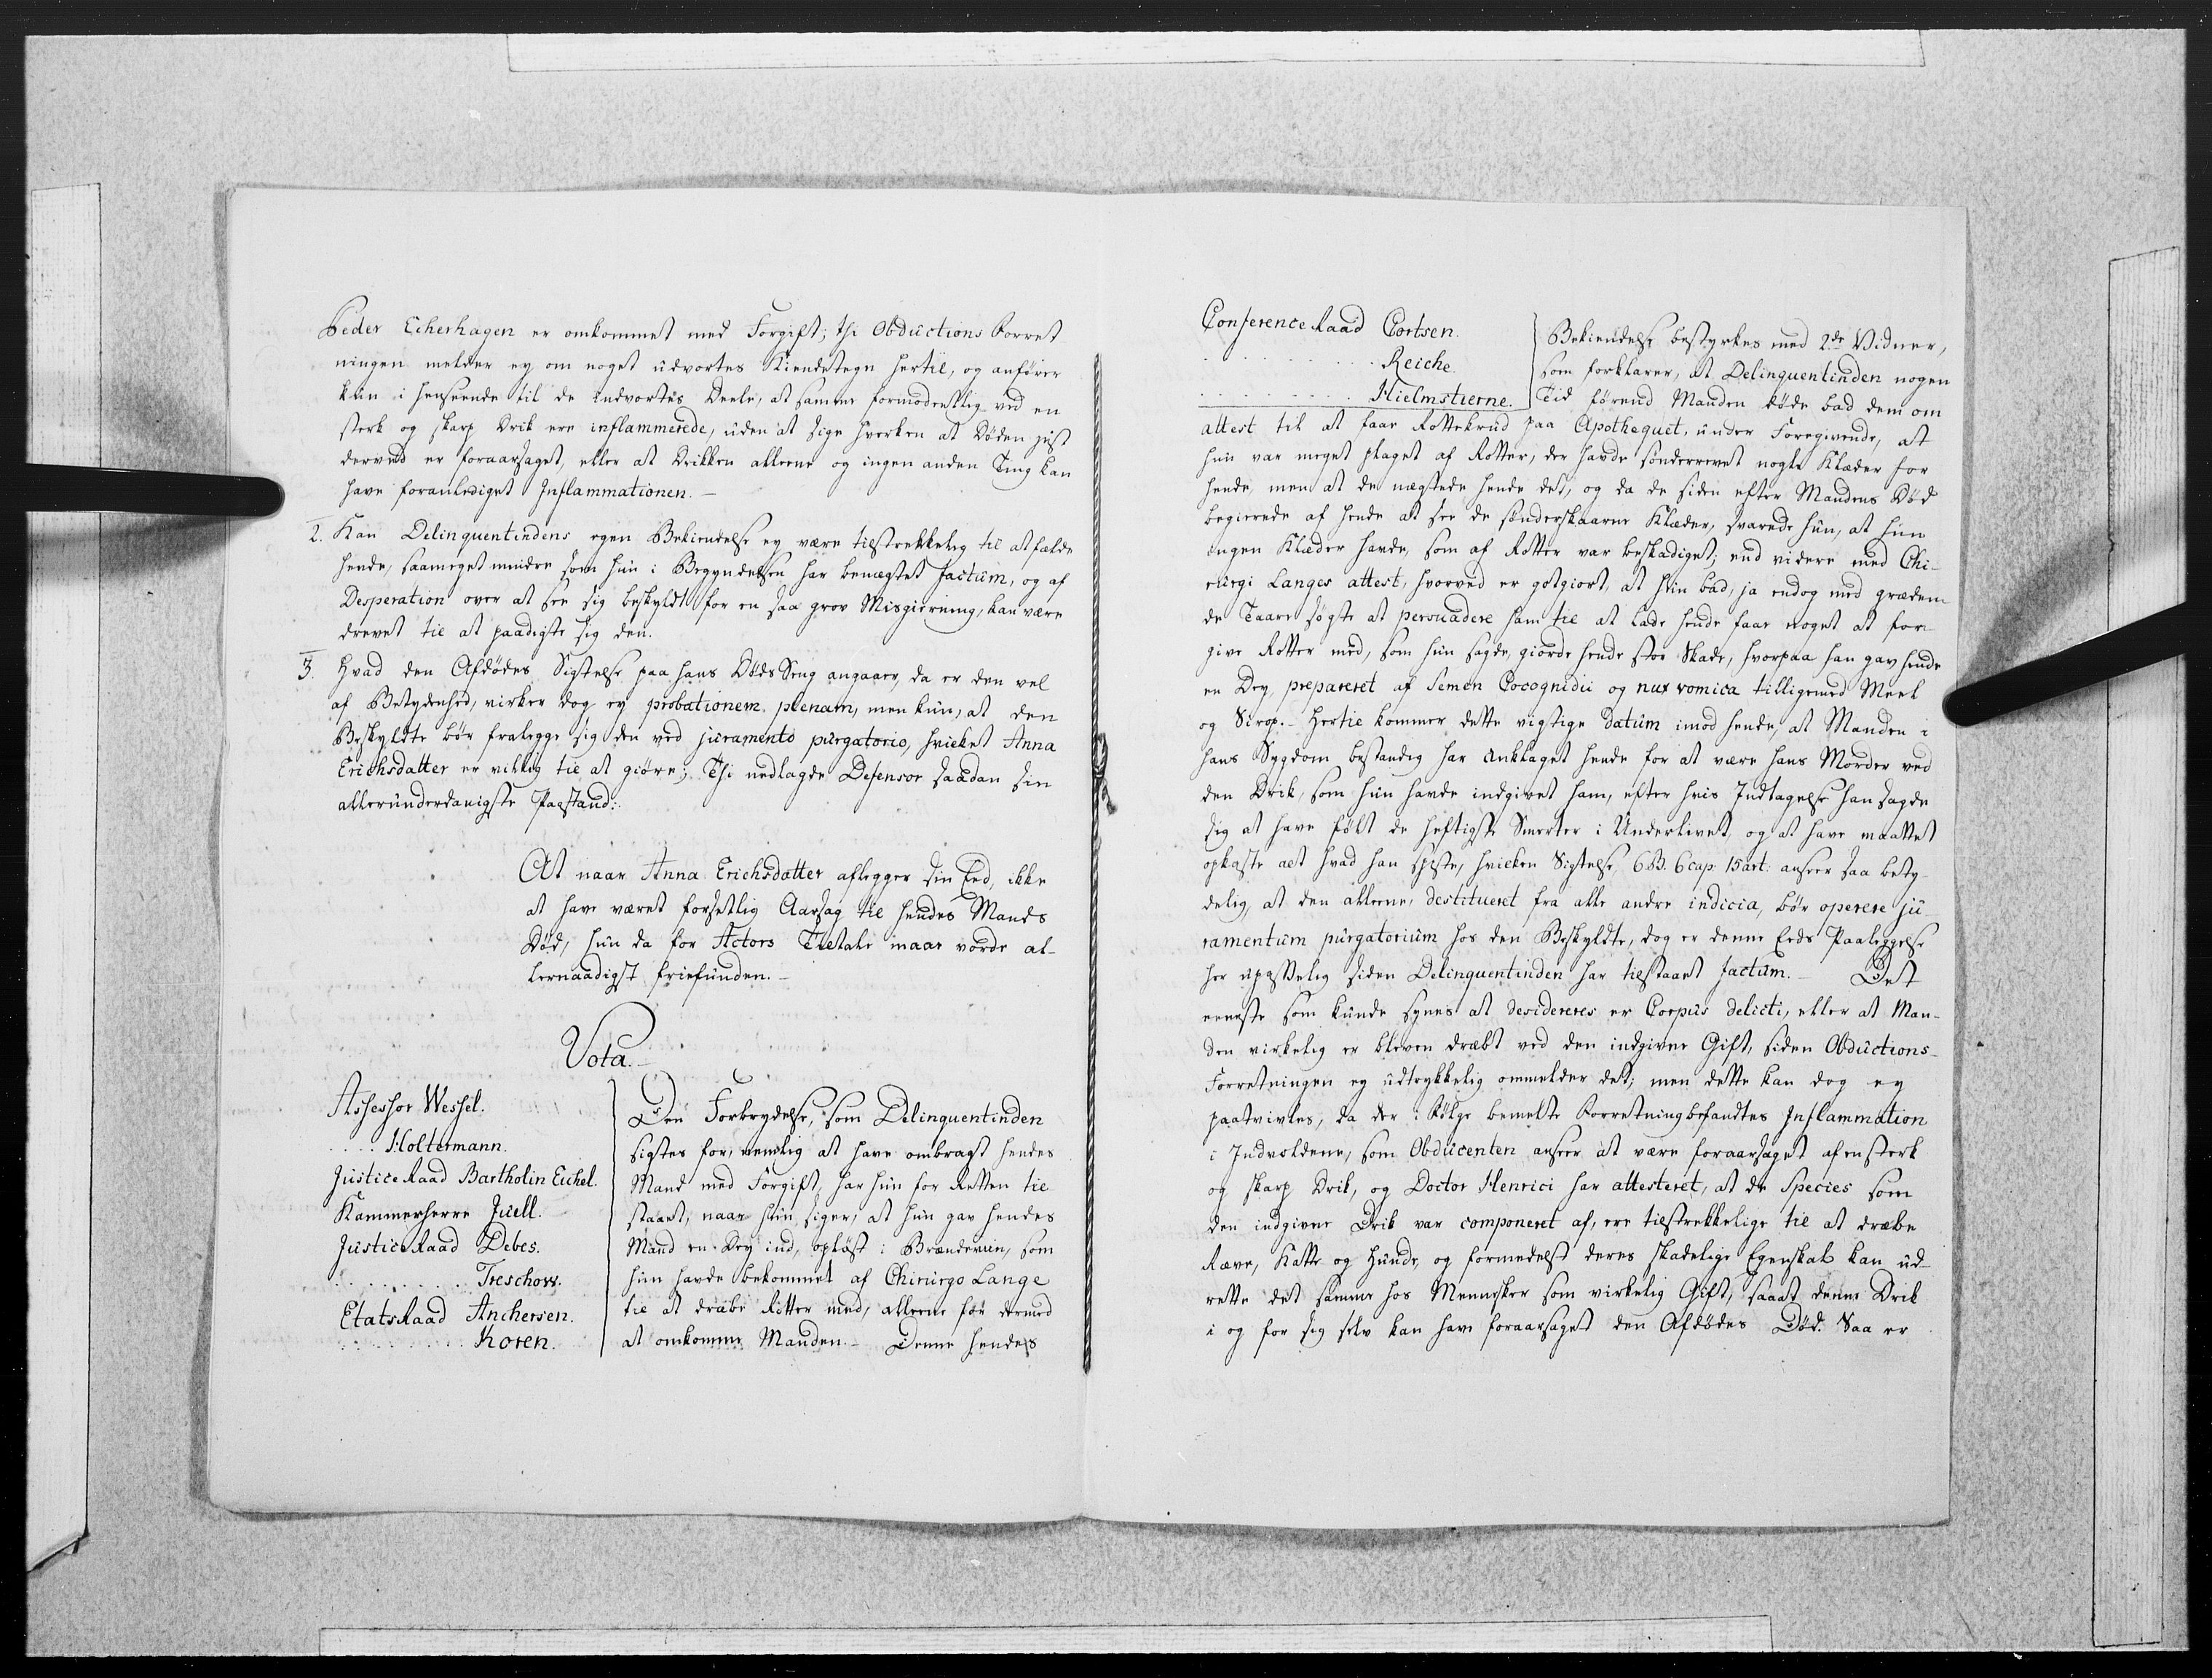 Peder Echerhagen er omkommet med Forgift; thi Obductions Forret
ningen melder ey om noget udvortes Kiendetegn hertil, og anfører
kun i henseende til de indvortes Deele, at samme formodentlig ved en
sterk og skarp Drik ere inflammerede, uden at sige hverken at Døden just
derved er foraarsaget, eller at Drikken alleene og ingen anden Ting kan
have foranlediget Inflammationen. –
2. Kan Delinquentindens egen Bekiendelse ey være tilstrekkelig til at fælde
hende, saameget mindre som hun i Begyndelsen har benægtet factum, og af
Desperation over at see sig beskyldt for en saa grov Misgierning, kan være
drevet til at paadigte sig den.
3. Hvad den Afdødes Sigtelse paa hans Døds Seng angaaer, da er den vel
af Betydenhed, virker dog ey probationem plenam, men kun, at den
Beskyldte bør fralegge sig den ved juramento purgatorio, hvilket Anna
Erichsdatter er villig til at giøre; Thi nedlagde Defensor saadan sin
allerunderdanigste Paastand:
At naar Anna Erichsdatter aflegger sin Eed, ikke
at have været forsetlig Aarsag til hendes Mands
Død, hun da for Actors Tiltale maae vorde al-
lernaadigst friefunden. –
Vota. –
Assessor Wessel.
. . . . Holtermann.
Justice Raad Bartholin Eichel.
Kammerherre Juell.
Justice Raad Debes.
. . . . . . . . . Treschow.
Etats Raad Anchersen.
. . . . . . . . . Koren.
Den Forbrydelse, som Delinquentinden
sigtes for, nemlig at have ombragt hendes
Mand med Forgift, har hun for Retten til
staaet, naar hun siger, at hun gav hendes
Mand en Dey ind, opløst i Brændeviin, som
hun havde bekommet af Chirurgo Lange
til at dræbe Rotter med, alleene for dermed
at omkomme Manden. – Denne hendes
Conference Raad Cortsen.
. . . . . . . . . . . Reiche.
. . . . . . . . . . . Hielmstierne.
Bekiendelse bestyrkes med 2de Vidner,
som forklarer, at Delinquentinden nogen
Tid førend Manden døde bad dem om
attest til at faae Rottekrud paa Apothequet, under Foregivende, at
hun var meget plaget af Rotter, der havde sønderrevet nogle Klæder for
hende, men at de nægtede hende det, og da de siden efter Mandens Død
begierede af hende at see de sønderskaarne Klæder, svarede hun, at hun
ingen Klæder havde, som af Rotter var beskadiget; end videre med Chi-
rurgi Langes attest, hvorved er gotgiort, at hun bad, ja endog med græden
de Taare søgte at persuadere ham til at lade hende faae noget at for-
give Rotter med, som hun sagde, giorde hende stor Skade, hvorpaa han gav hende
en Dey, prepareret af Semen Cocognidii og nux vomica tilligemed Meel
og Sirop. – Hertil kommer dette vigtige datum imod hende, at Manden i
hans Sygdom bestandig har anklaget hende for at være hans Morder ved
den Drik, som hun havde indgivet ham, efter hvis Indtagelse han sagde
sig at have følt de heftigste Smerter i Underlivet, og at have maattet
opkaste alt hvad han spiste, hvilken Sigtelse 6 B. 6 cap: 15 art: anseer saa bety-
delig, at den alleene, destitueret fra alle andre indicia, bør operere ju
ramentum purgatorium hos den Beskyldte, dog er denne Eeds Paaleggelse
her upasselig siden Delinquentinden har tilstaaet factum. – Det
eeneste som kunde synes at desidereres er Corpus delicti, eller at Man-
den virkelig er bleven dræbt ved den indgivne Gift, siden Obductions-
Forretningen ey udtrykkelig ommelder det; men dette kan dog ey
paatvivles, da der i Følge bemelte Forretning befandtes Inflammation
i Indvoldene, som Obducenten anseer at være foraarsaget af en sterk
og skarp Drik, og Doctor Henrici har attesteret, at de Species som
den indgivne Drik var componeret af, ere tilstrekkelige til at dræbe
Ræve, Katte og Hunde, og formedelst deres skadelige Egenskab kan ud-
rette det samme hos Mennesker som virkelig Gift, saa at denne Drik
i og for sig selv kan have foraarsaget den Afdødes Død. Saa er